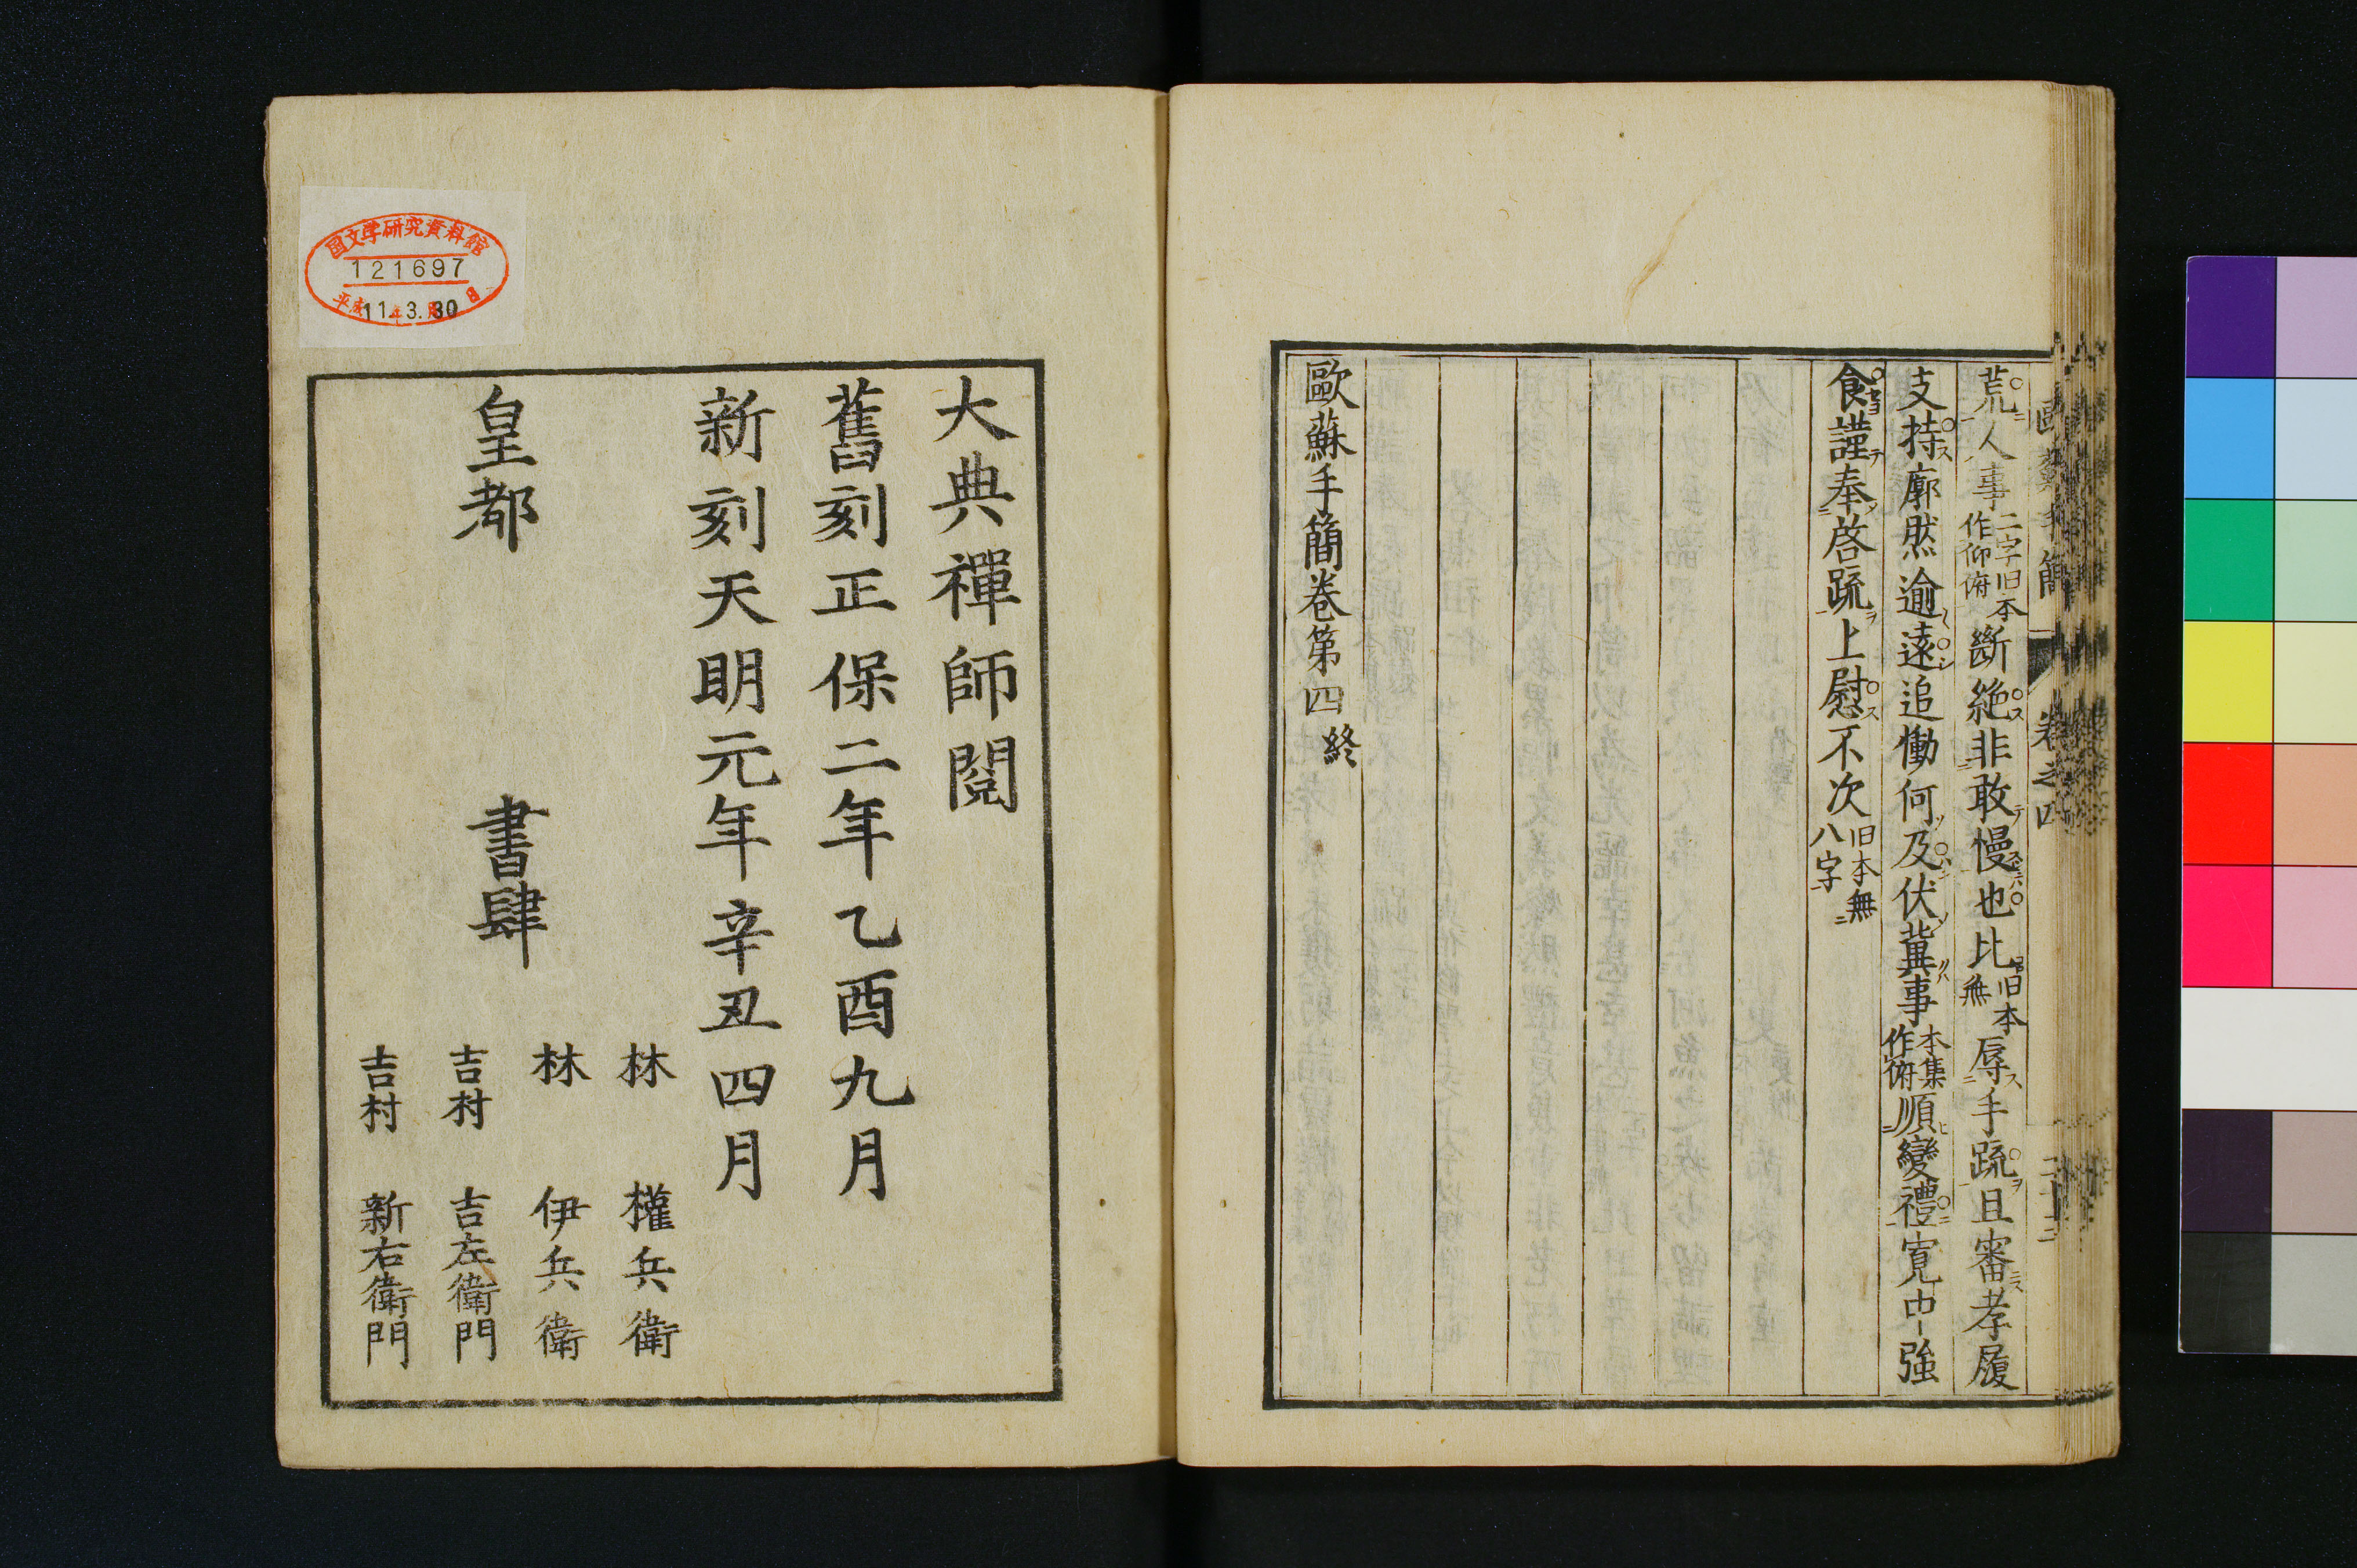 歐蘇手簡
卷之四
二十二
荒人事二字旧本作仰俯斷絶非敢慢也比旧本無辱手疏且審孝履
支持廓然逾遠追慟何及伏冀事本集作俯順變禮寛中強
食謹奉啓疏上慰不次旧本無八字
歐蘇手簡卷第四終
大典禪師閲
舊刻正保二年乙酉九月
新刻天明元年辛丑四月
皇都 書肆
林 權兵衛
林 伊兵衛
吉村 吉左衛門
吉村 新右衛門
国文学研究資料館
121697
平成11年3月30日